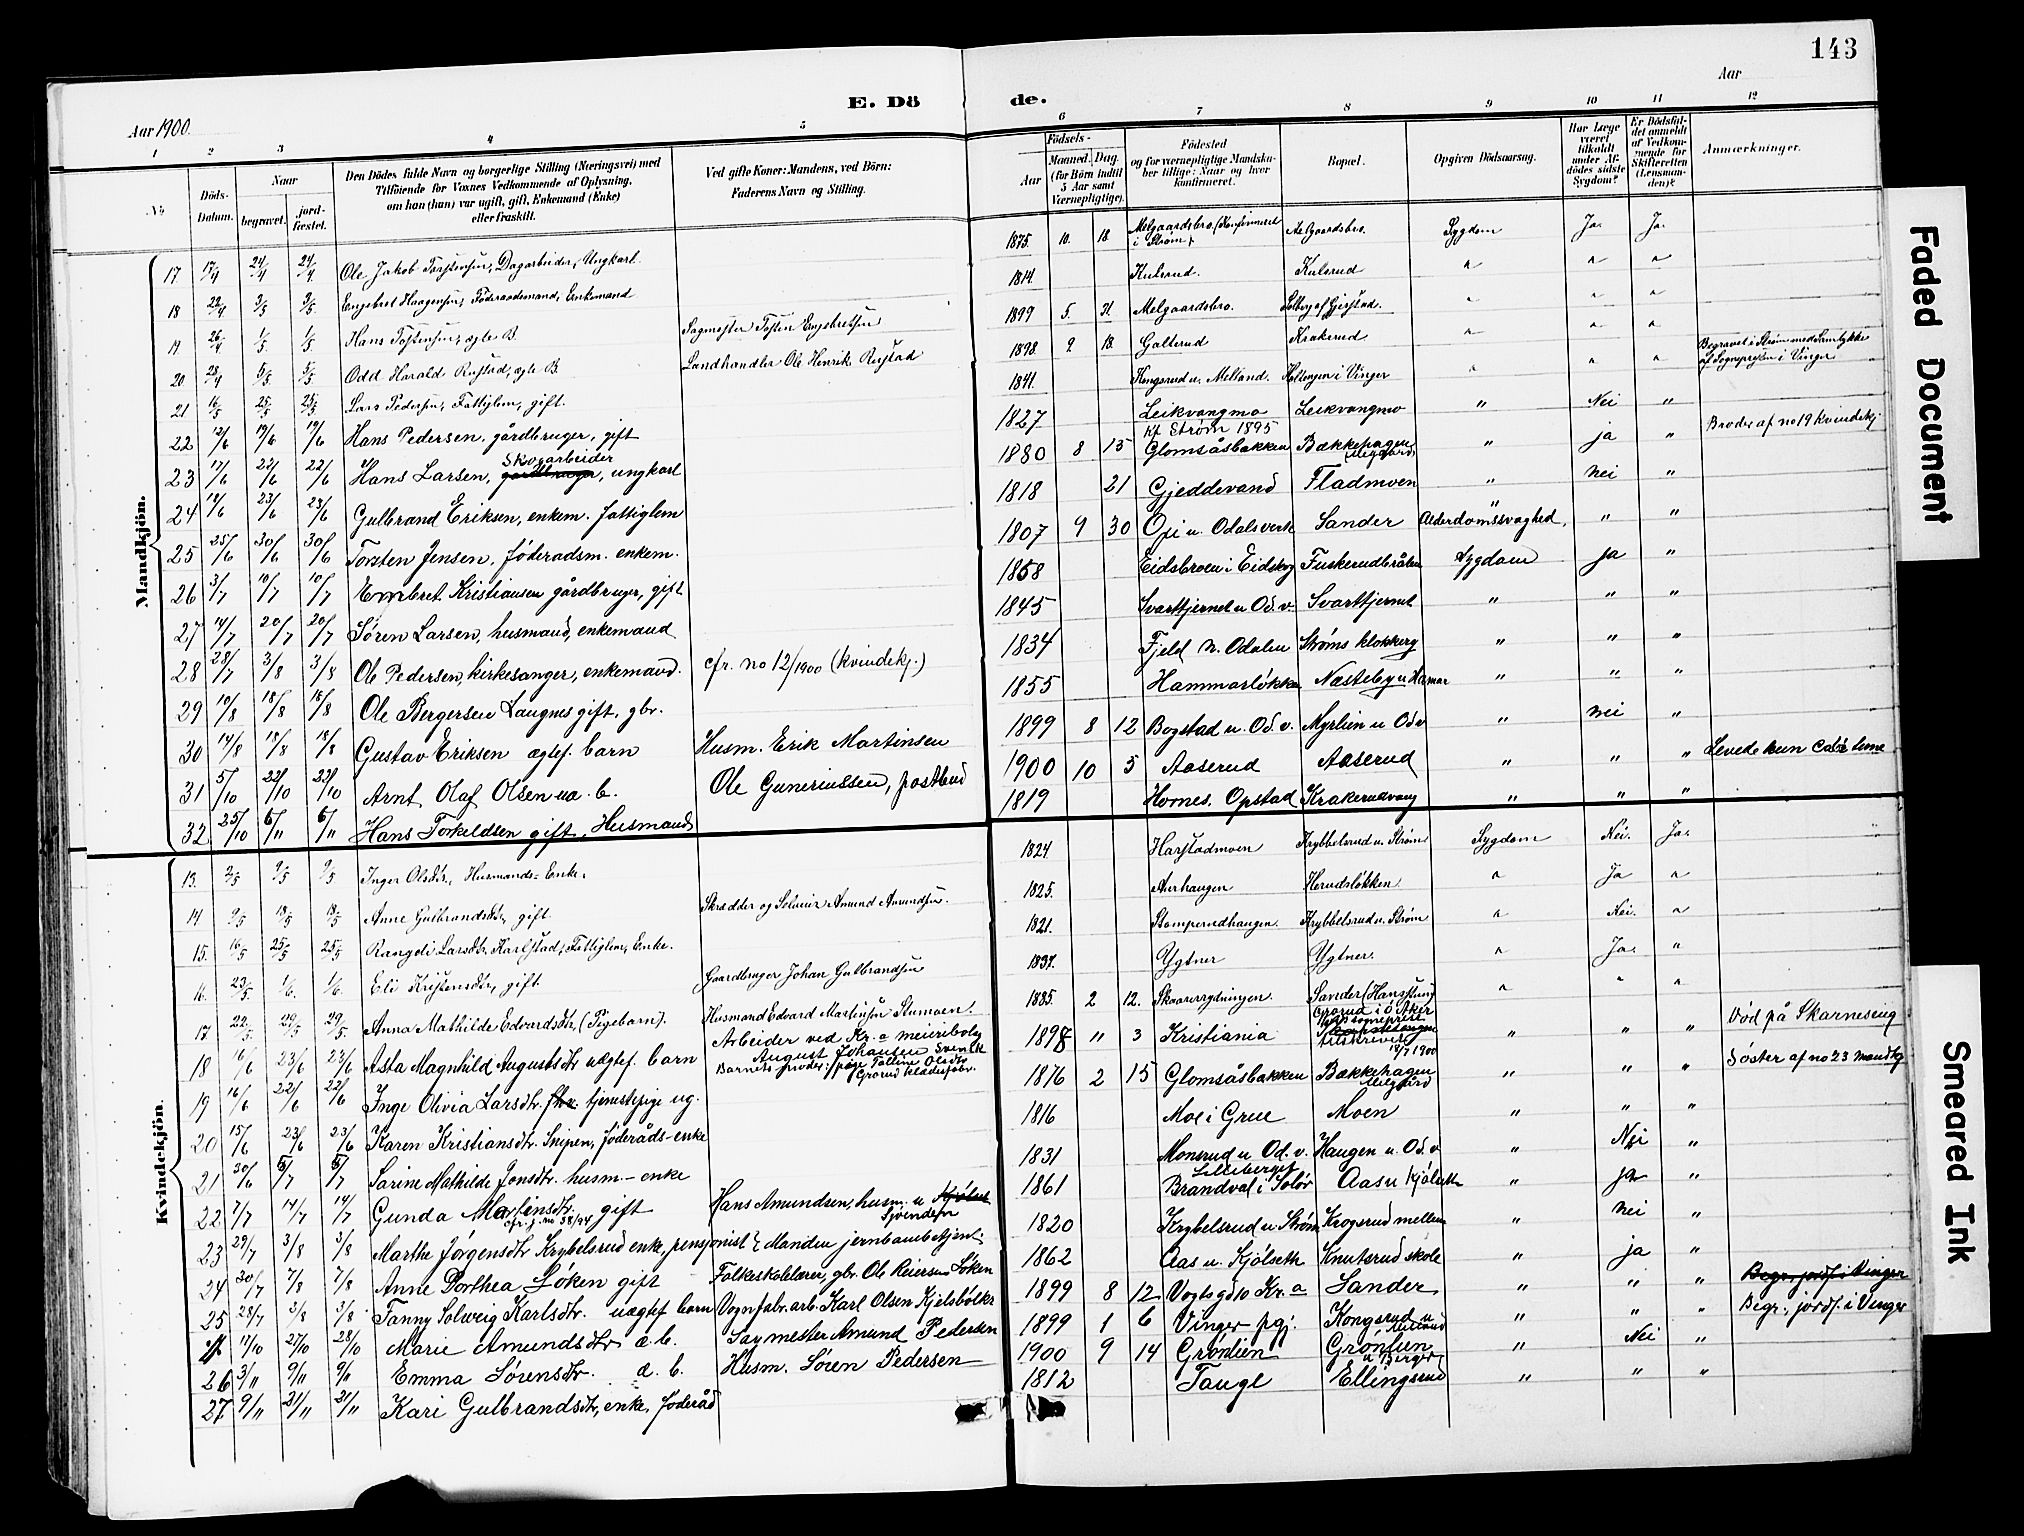 143
E. Dö de.
Aar 1900.
Aar
1 2 3 4 5 6 7 8 9 10 11 12
No
Döds-Datum.
Naar
begravet.
jord-fæstet.
Den Dödes fulde Navn og borgerlige Stilling (Næringsvei) med
Tilföiende for Voxnes Vedkommende af Oplysning,
om han (hun) var ugift, gift, Enkemand (Enke)
eller fraskilt.
Ved gifte Koner: Mandens, ved Börn:
Faderens Navn og Stilling.
Födsels-
Aar
Maaned. Dag.
(for Börn indtil
5 Aar samt
Værnepligtige).
Födested
og for værnepligtige Mandska-
ber tillige: Naar og hvor
konfirmeret.
Bopæl.
Opgiven Dödsaarsag.
Har Læge
været
tilkaldt
under Af-
dödes sidste
Sygdom?
Er Dödsfal-
det anmeldt
af Vedkom-
mende for
Skifteretten
(Lensman-
den)?
Anmærkninger.
Mandkjön.
17 17/4 24/4 24/4 Ole Jakob Torstensen, Dagarbeider, Ungkarl. 1875. 10. 18. Melgaardsbro. (Konfirmeret i Strøm). Melgaardsbro. Sygdom Ja. Ja.
18 22/4 3/5 3/5 Engebret Haagensen, Föderaadsmand, Enkemand 1814. Kulsrud. Kulsrud " " "
19 26/4 1/5 1/5 Hans Tostensen, ægte B. Sagmester Tosten Engebretsen 1899 5. 31. Melgaardsbro. Solberg af Gjerstad. " " "
20 28/4 5/5 5/5 Odd Harald Rustad, ægte B. Landhandler Ole Henrik Rustad 1898. 9. 18. Galterud Krakerud " " "
21 16/5 25/5 25/5 Lars Pedersen, Fattiglem, gift. 1841. Kongsrud u. Melland. i Vinger " " " Begravet i Strøm med Samtykke af Sognepresten i Vinger
22 12/6 19/6 19/6 Hans Pedersen, gårdbruger, gift 1827 Leikvangmo Leikvangmo " Nei "
23 17/6 22/6 22/6 Hans Larsen, Skogarbeider gårdbruger, ungkarl 1880 8 15 kf Strøm 1895 Glomsåsbakken Bækkehagen Melgård " ja " Broder af no 19 kvindekj.
24 19/6 23/6 23/6 Gulbrand Eriksen, enkem. fattiglem 1818 21 Gjeddevand Fladmoen " nei "
25 25/6 30/6 30/6 Torsten Jensen, föderadsm. enkem. 1807 9 30 Opi u. Odalsverk Sander Alderdomssvaghed, " "
26 3/7 10/7 10/7 Embret Kristiansen gårdbruger, gift 1858 Eidsbroen i Eidskog Fuskerudbråten Sygdom ja "
27 14/7 20/7 20/7 Søren Larsen, husmand, enkemand 1845 Svarttjernet u Od. v. Svarttjernet " " "
28 28/7 3/8 3/8 Ole Pedersen, kirkesanger, enkemand. cfr. no 12/1900 (kvindekj.) 1834 Fjeld N. Odalen Strøms klokkerg " " "
29 10/8 18/8 18/8 Ole Bergersen Laugnes gift, gbr. 1855 Hammarløkken Næsteby u Hamar " " "
30 14/8 18/8 18/8 Gustav Eriksen ægtef. barn Husm. Erik Martinsen 1899 8 12 Bogstad u. Od. v. Myrlien u Od v " nei "
31 5/10 22/10 22/10 Arnt Olaf Olsen ua. b. Ole Guneriussen, postbud 1900 10 5 Aaserud Aaserud " " " Levede kun time
32 25/10 6/11 6/11 Hans Torkildsen gift, Husmand 1819 Hornes. Opstad Krakerudvang " " "
Kvindekjön.
13. 2/5 9/5 9/5 Inger Olsdtr, Husmands-Enke. 1824. Harstadmoen Krybbelsrud u. Strøm Sygdom Nei. Ja.
14 9/5 18/5 18/5 Anne Gulbrandsdtr, gift Skrædder og Selveier Amund Amundsen. 1825. Aurhaugen Herudsløkken " Ja "
15. 16/5 25/5 25/5 Rangdi Larsdtr. Karlstad, Fattiglem, Enke. 1821. Stomperudhaugen. Krybbelsrud u. Strøm " Nei. "
16. 23/5 1/6. 1/6. Eli Kristensdtr, gift Gaardbruger Johan Gulbrandsen 1837. Ygtner Ygtner. " Ja. "
17. 22/5 29/5 29/5 Anna Mathilde Edvardsdtr, (Pigebarn). Husmand Edvard Martinsen Stumoen. 1885. 2 12. Skaarerrydningen. Sander (Hansstun) " " "
18 16/6 23/6 23/6 Asta Magnhild Augustsdtr uægtef. barn Arbeider ved Kr.a meieribolag August Johansen Svensk Barnets moder: pige Talline Olsdtr Grorud klædesfabr. 1898 " 3 Kristiania Grorud i Ö Aker tilskrivet 18/7 1900 " " " Död på Skarneseng
19 16/6 22/6 22/6 Inge Olivia Larsdtr. tjenestepige ug. 1876 2 15 Glomsåsbakken Bækkehagen Melgård " " " Söster af no 23 mandkj.
20 15/6 23/6 23/6 Karen Kristiansdtr. Snipen, föderåds-enke 1816 Moe i Grue Moen " " "
21 30/6 5/7 5/7 Sarine Mathilde Jonsdtr. husm.-enke 1831 Monsrud u. Od. v. Haugen u. Od. v " Nei "
22 7/7 14/7 14/7 Gunda Martinsdtr. gift cfr. j. no 58/94 Hans Amundsen, husm. u Kjölset 1861 Lilleberget Brandval i Solör Aas u Kjölseth " ja "
23 29/7 3/8 3/8 Marthe Jørgensdtr Krybelsrud enke, pensjonist Manden jernbanebetjent. 1820 Krybelsrud u. Strøm Krogsrud mellem " nei "
24 30/7 7/8 7/8 Anne Dorthea Løken gift Folkeskolelærer, gbr. Ole Reiersen Løken 1862 Aas u. Kjölseth Knutsrud skole " ja "
25 28/7 3/8 3/8 Fanny Solveig Karlsdtr. uægtef barn Vognfabr. arb. Karl Olsen Kjelsbölkr 1899 8 12 Vogtsgd 10 Kr.a Sander " " " Begr. jordf. i Vinger
17/10 27/10 28/10 Marie Amundsdtr æ. b. Sagmester Amund Pedersen 1899 1 6 Vinger pgj. Kongsrud u Melland " " " Begr. jordf. i Vinger
26 3/11 9/11 9/11 Emma Sørensdtr. æ. b. Husm. Søren Pedersen 1900 9 14 Grønlien Grønlien u Berger " Nei "
27 9/11 21/11 21/11 Kari Gulbrandsdtr, enke, föderåd 1812 Tauge Ellingsrud " " "
Faded Document
Smeared Ink